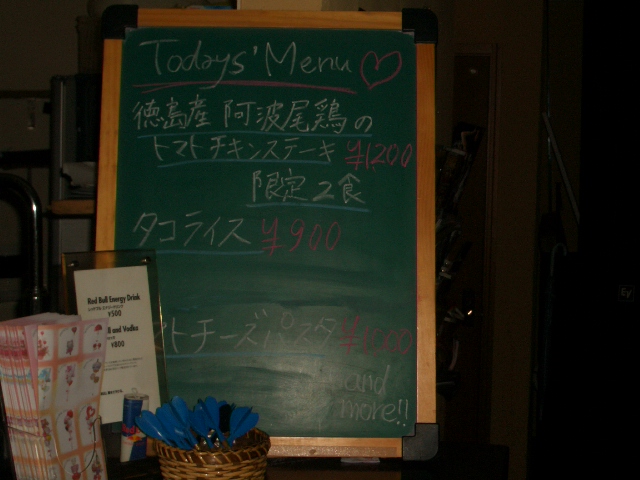 Todays' Menu
徳島産 阿波尾鶏の
トマトチキンステーキ ¥1200
限定2食
タコライス ¥900
マトチーズパスタ ¥1000
and
more!!
Red Bull Energy Drink
¥500
and Vodka
¥800